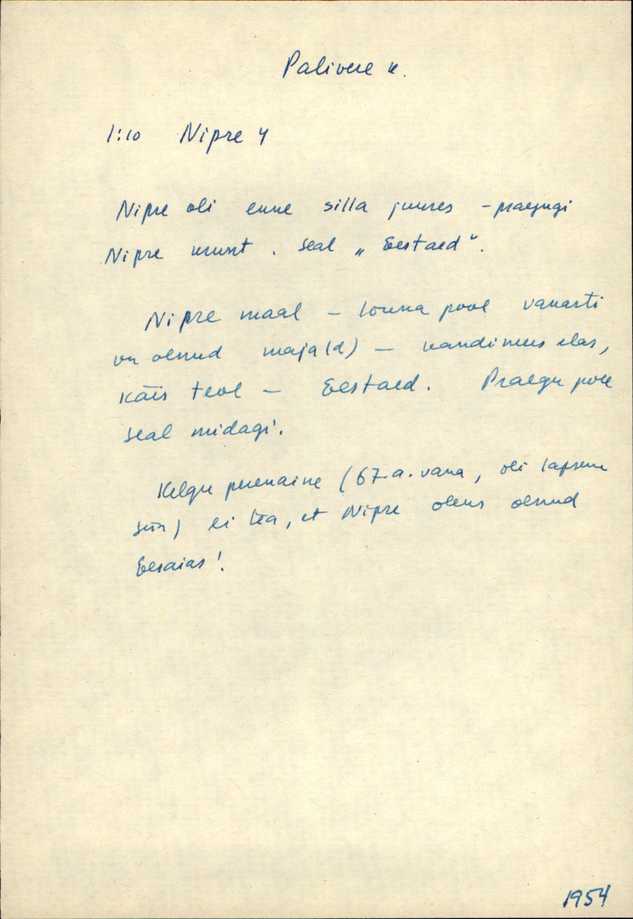 Palivere k.
1:10 Nipre 4
Nipre oli enne silla juures - praegugi
Nipre murst. Seal „Eestaed“.
Nipre maal - lõuna pool vanasti
on olnud maja(d) - vandimees elas,
käis teol - Eestaed. Praegu pole
seal midagi.
Kelgu perenaine (67-a. vana, oli lapsena
siin) ei tea, et Nipre oleks olnud
Eesaias!
1954